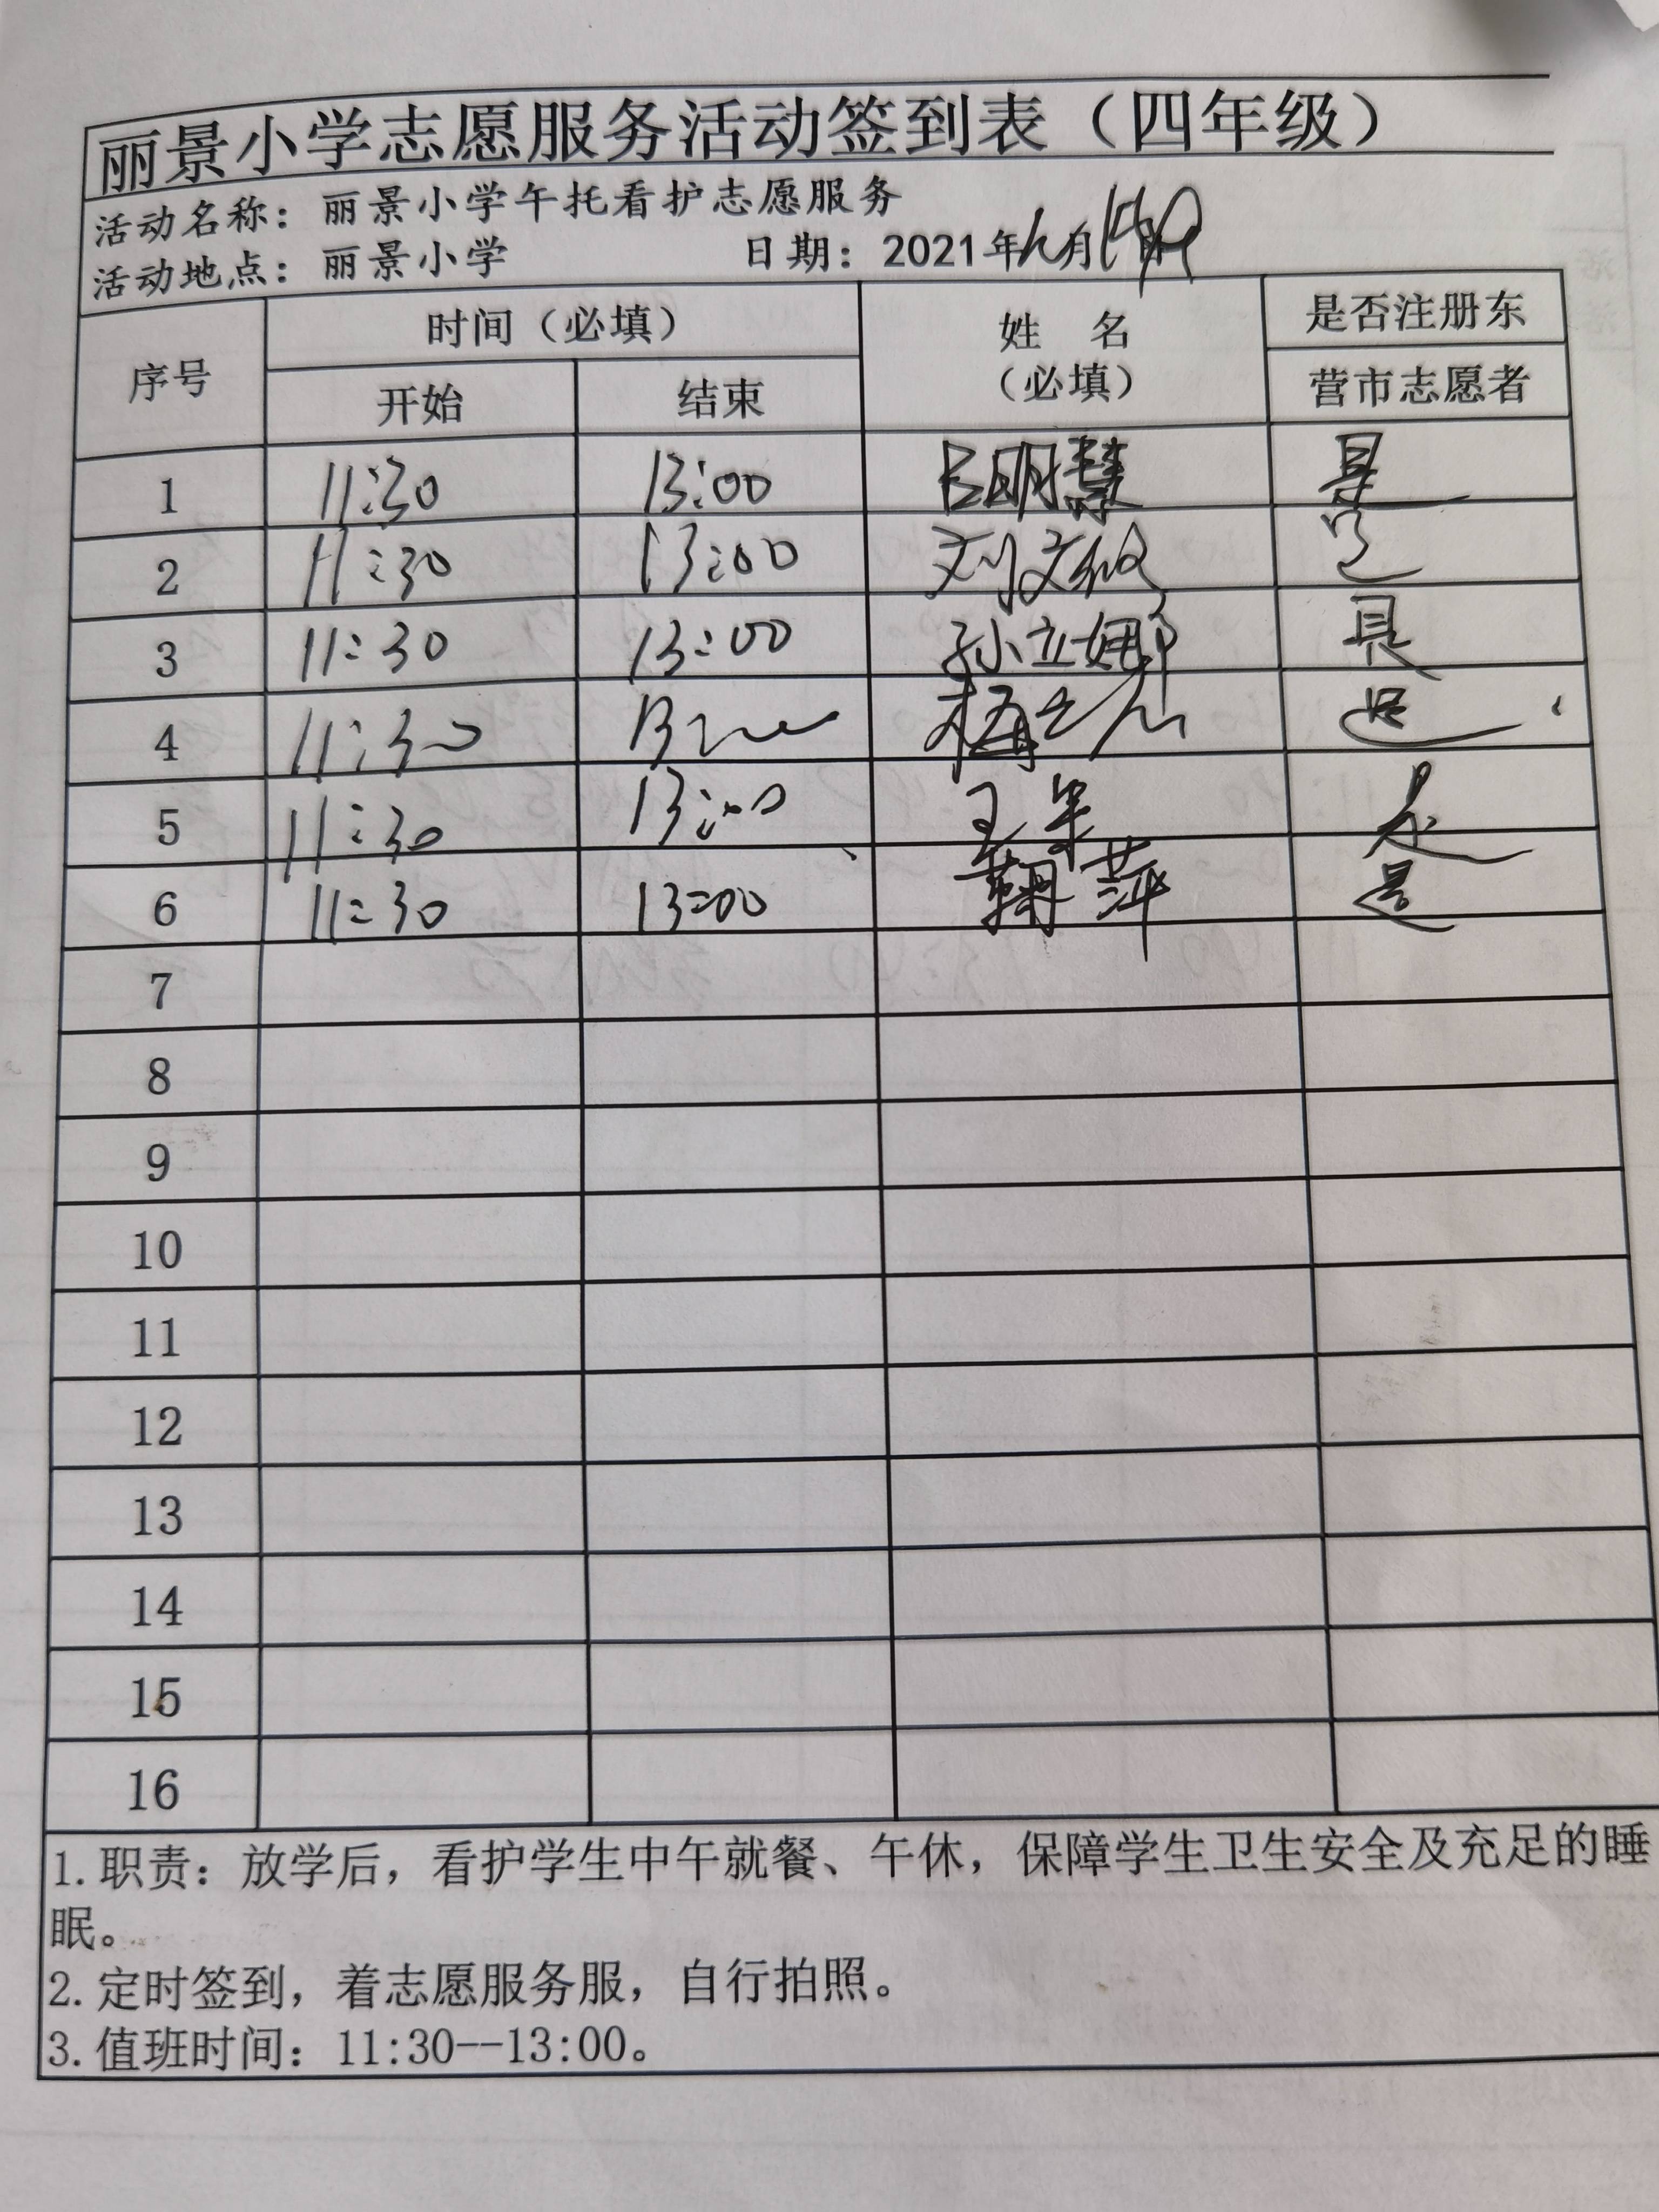 丽景小学志愿服务活动签到表（四年级）
活动名称：丽景小学午托看护志愿服务
活动地点：丽景小学 日期：2021年 月 日
序号 时间（必填） 姓名（必填） 是否注册东营市志愿者
开始 结束
1 11:30 13:00 明慧 是
2 11:30 13:00 刘文 是
3 11:30 13:00 孙立娜 是
4 11:30 13:00 是
5 11:30 13:00 王 是
6 11:30 13:00 鞠萍 是
7
8
9
10
11
12
13
14
15
16
1.职责：放学后，看护学生中午就餐、午休，保障学生卫生安全及充足的睡
眠。
2.定时签到，着志愿服务服，自行拍照。
3.值班时间：11:30--13:00。